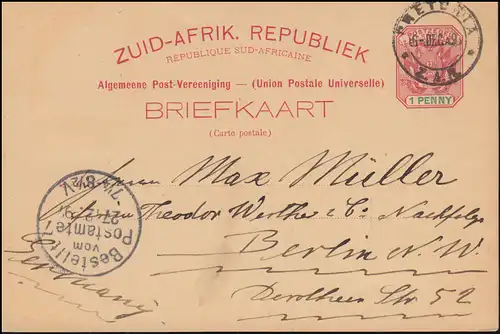 ZUID-AFRIK. REPUBLIEK
REPUBLIQUE SUD-AFRICAINE
Algemeene Post-Vereeniging — (Union Postale Universelle)
BRIEFKAART
(Carte postale)
PRETORIA
Z.A.R.
1 PENNY
Herrn Max Müller
Theodor Werther & Co. Nachfolger
Berlin N.W.
Dorotheen Str. 52
Germany
Bestellt
vom
Postamte 7